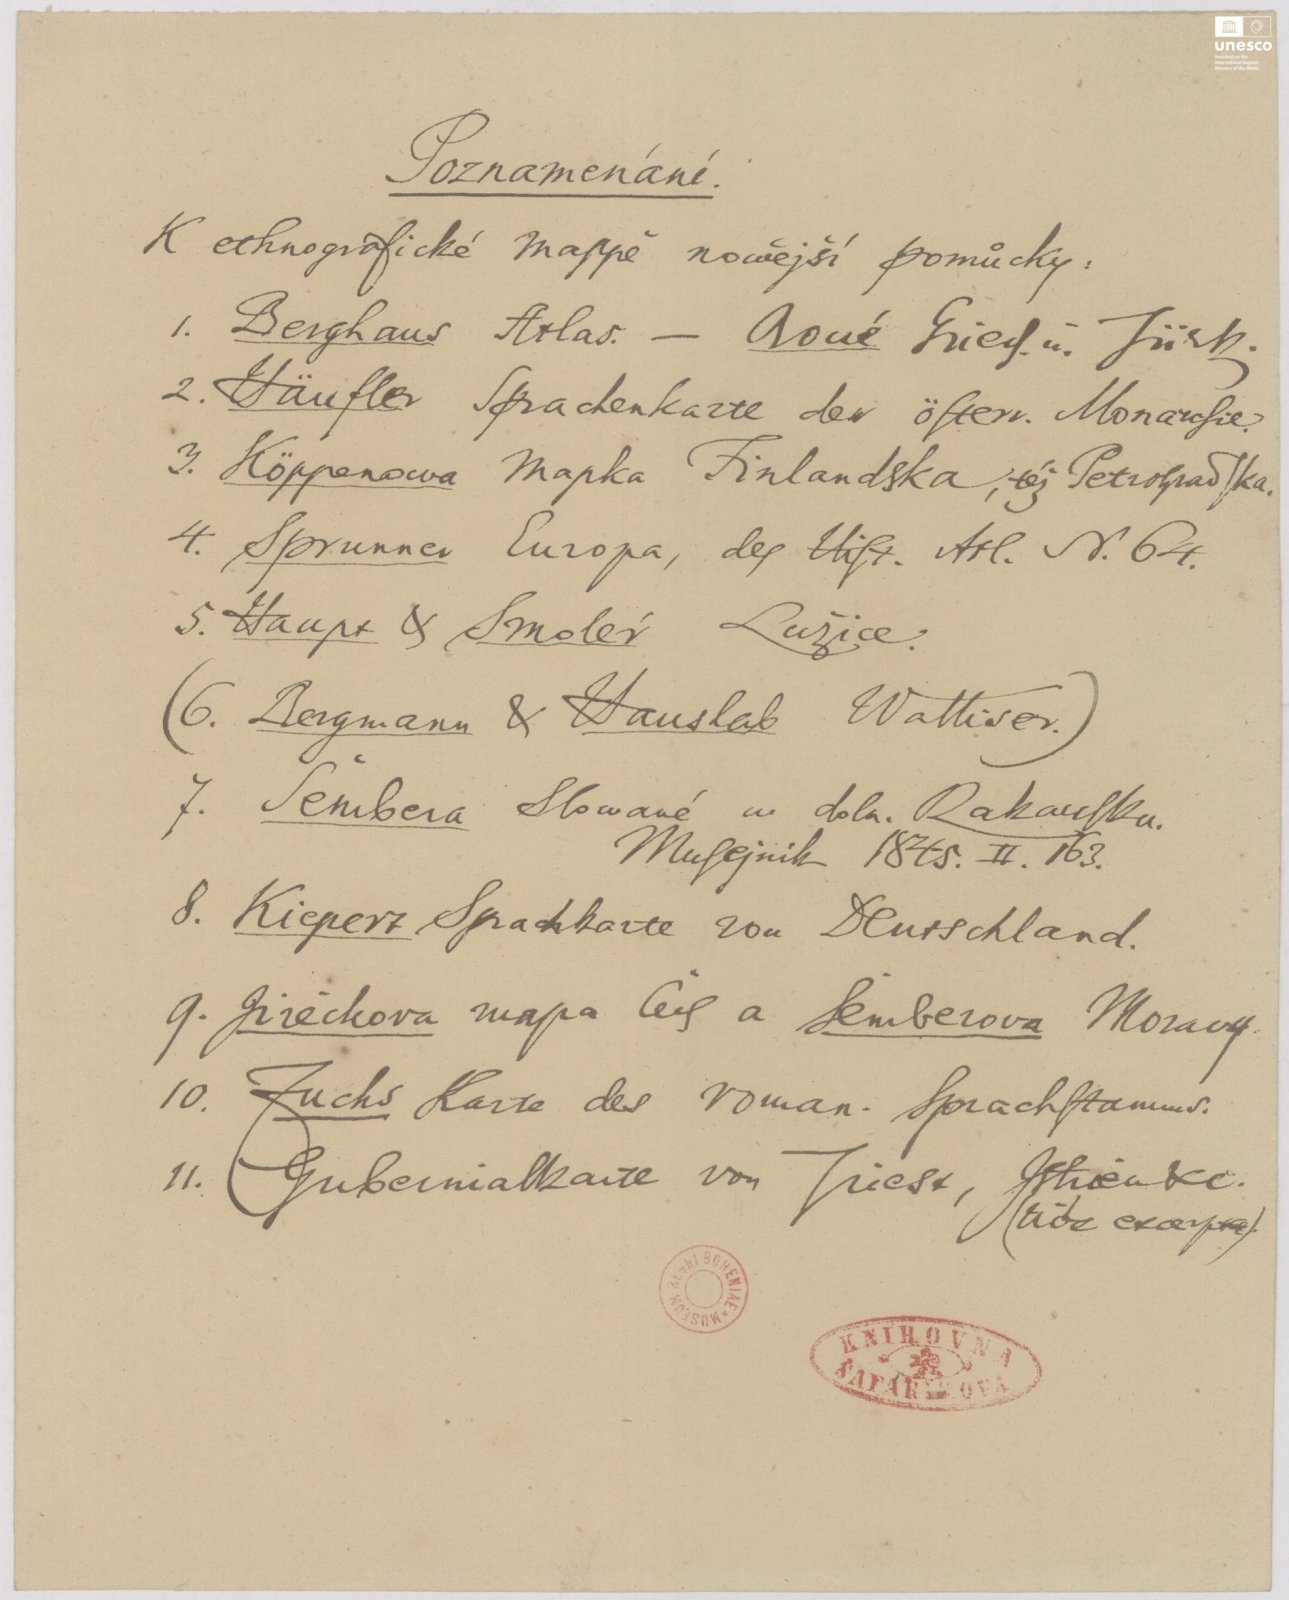 unesco
Poznamenání.
K ethnografické mappě nowější pomůcky:
1. Berghaus Atlas. — Boué Griech. u. Türk.
2. Häufler Sprachenkarte der österr. Monarchie.
3. Köppenowa mapka Finlandska, též Petrohradska.
4. Sprunner Europa, des Hist. Atl. N. 64.
5. Haupt & Smoleŕ Lužice.
(6. Bergmann & Hauslab Walliser.)
7. Šembera Slowané w doln. Rakausku.
Musejník 1845. II. 163.
8. Kiepert Sprachkarte von Deutschland.
9. Jirečkova mapa Čech a Šemberova Moravy.
10. Fuchs Karte des roman. Sprachstamms.
11. Gubernialkarte von Triest, Istrien &c.
(
MUSEUM REGNI BOHEMIAE
KNIHOVNA
ŠAFAŘÍKOVA